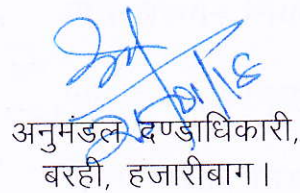 अनुमंडल दण्डाधिकारी,
बरही, हजारीबाग।